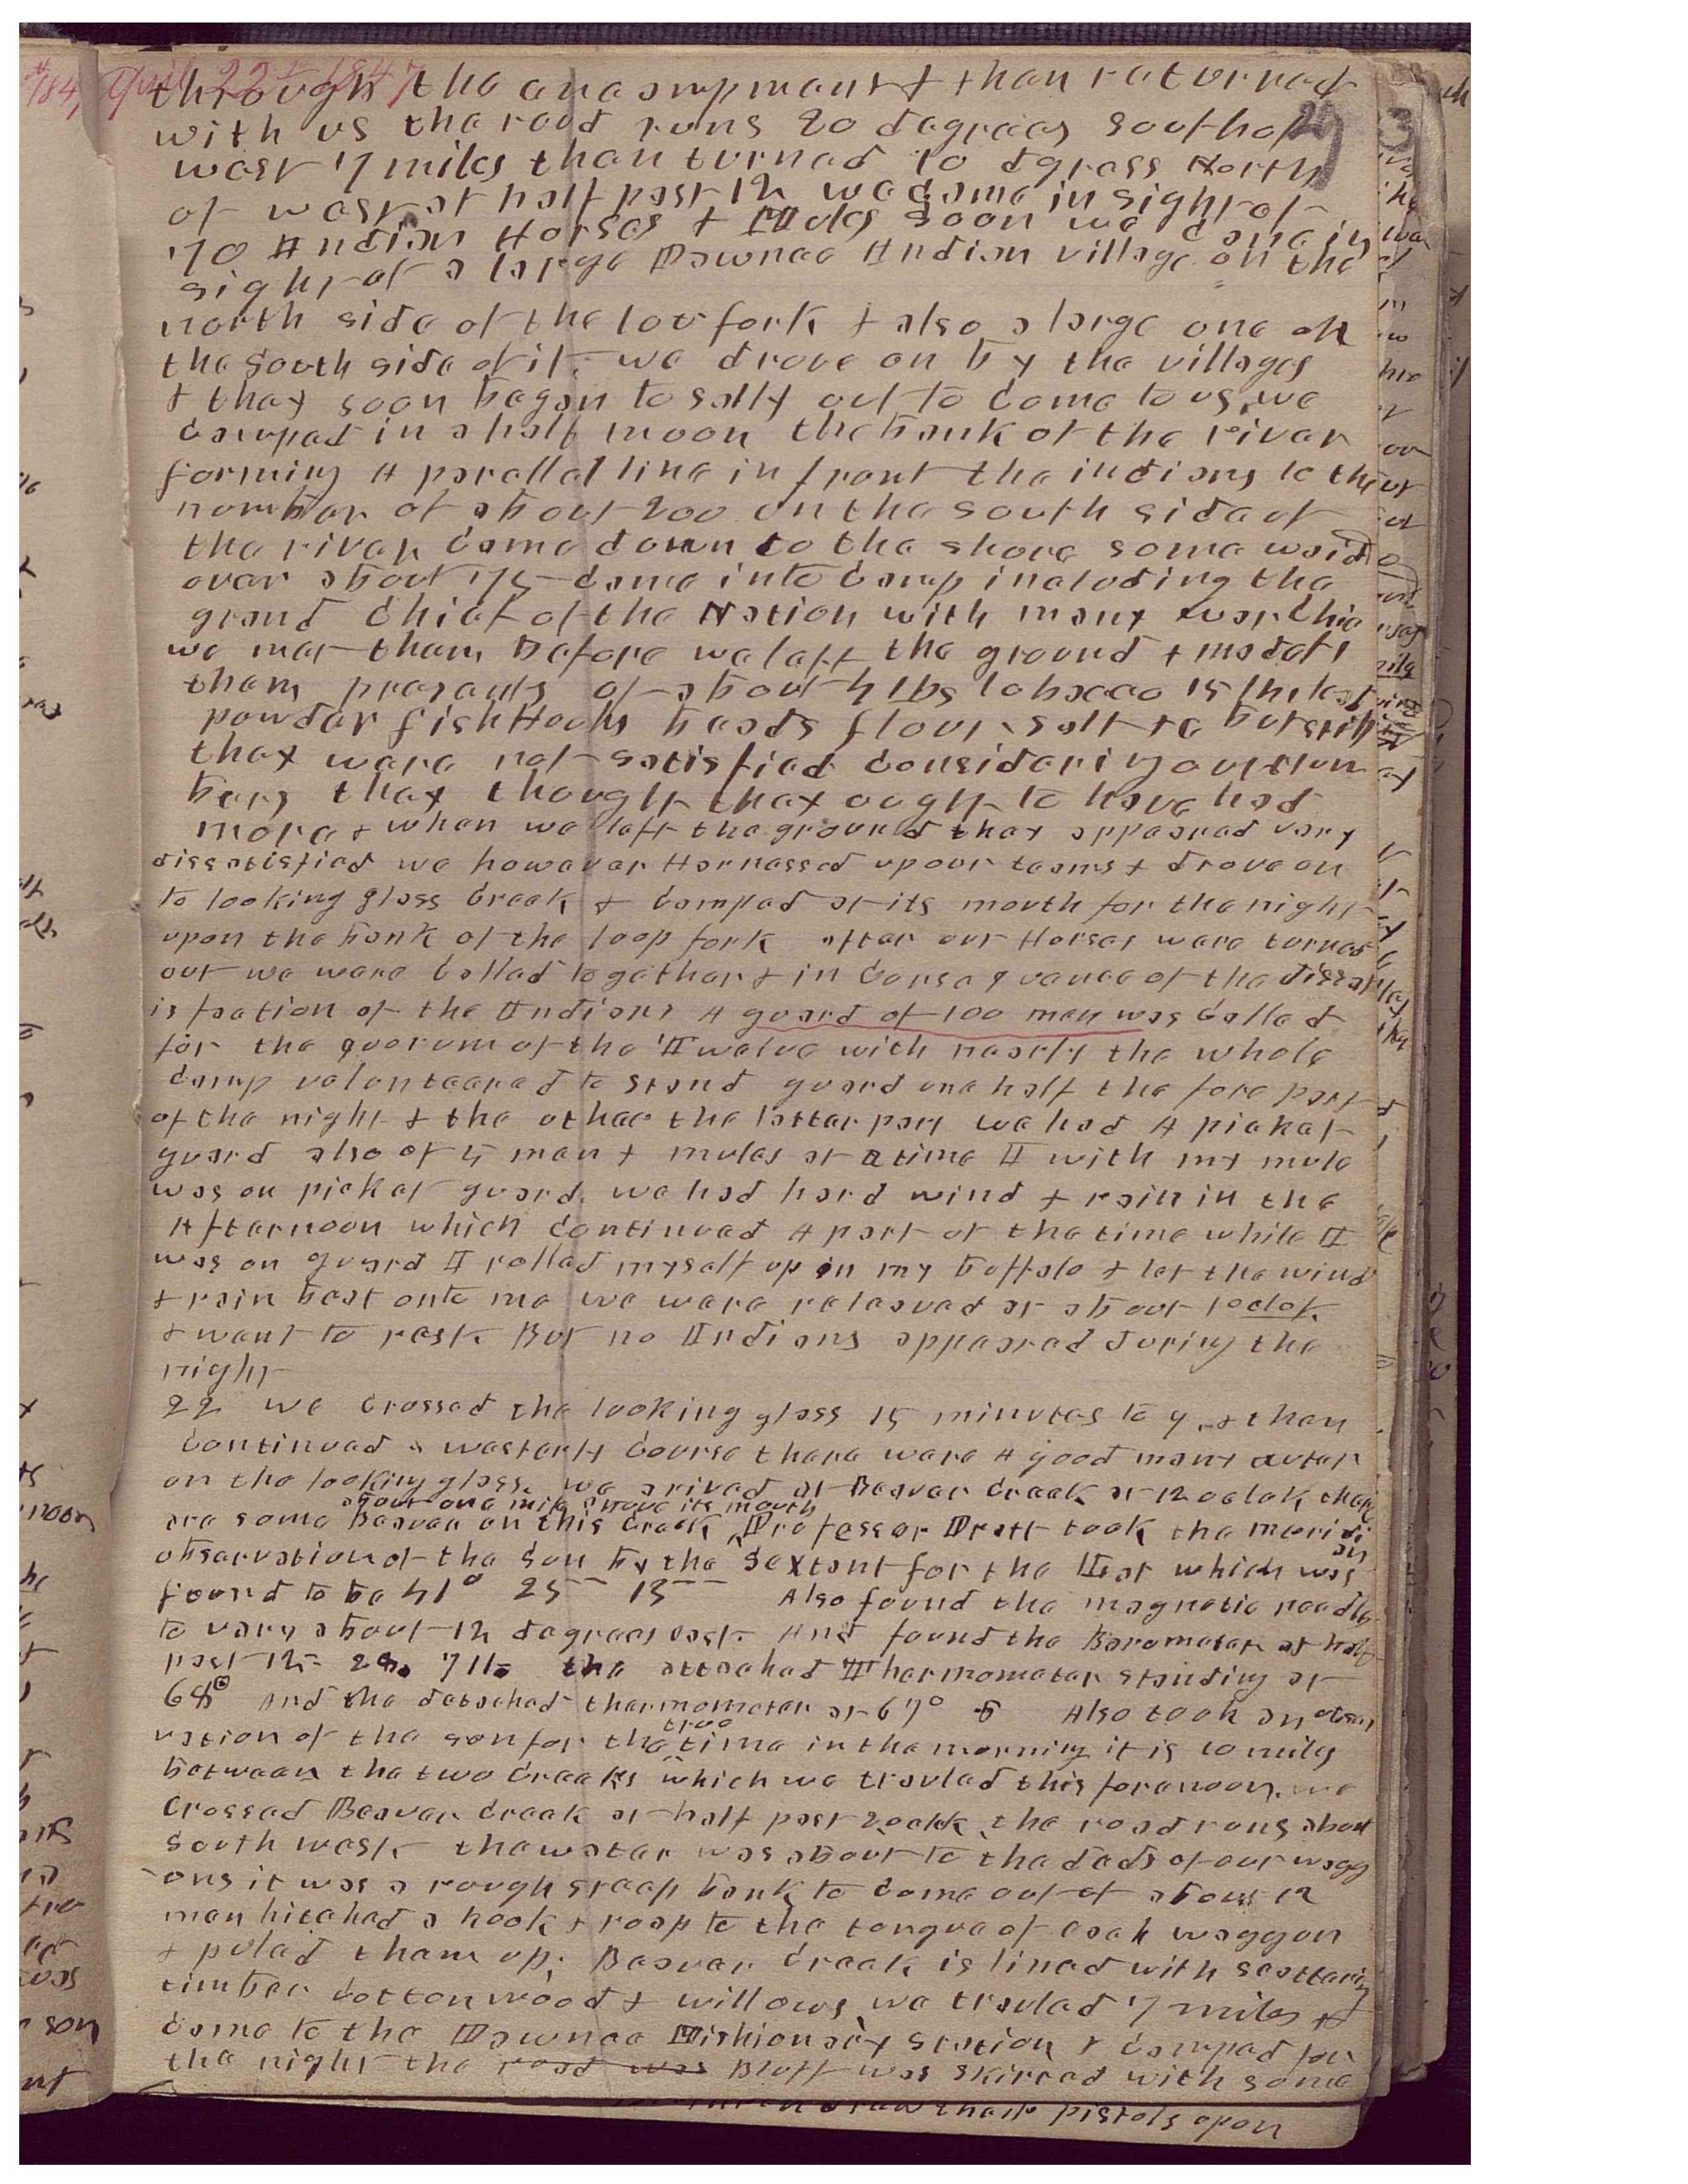 April 22nd 1847
through the encampment & then returned
with us the road runs 20 degrees south of
west 7 miles then turned 10 dgrees North
of west at half past 12 we came in sight of
70 Indian Horses & Mules soon we came in
sight of a large Pawnee Indian village on the
north side of the loo fork & also a large one on
the south side of it. we drove on by the villages
& they soon began to sally out to come to us, we
camped in a half moon the bank of the river
forming A parallel line in front the indians to the
number of about 200 on the south side of
the river came down to the shore some waid
over about 75 came into camp including the
grand chief of the Nation with many war chie
we met them before we left the ground & made
them presants of about 4 lbs tobacco 15 lbs lead
powder fish Hooks beads flour salt &c but still
they were not satisfied considering our num
bers they thought they ought to have had
more & when we left the ground they appeared very
dissatisfied we however Harnassed up our teams & drove on
to looking glass creek & camped at its mouth for the night
upon the bank of the loop fork after our Horses were turned
out we were called together & in consequence of the dissat
isfaction of the Indians A guard of 100 men was called
for the quorum of the Twelve with nearly the whole
camp volenteered to stand guard one half the fore part
of the night & the other the latter part we had A picket
guard also of 5 men & mules at a time I with my mule
was on picket guard. we had hard wind & rain in the
Afternoon which continued A part of the time while I
was on guard I rolled myself up in my buffalo & let the wind
& rain beat onto me we were releaved at about 1 oclok
& went to rest. But no Indians appeared during the
night
22 we crossed the looking glass 15 minutes to 9. & then
continued a westerly course there were A good many otter
on the looking glass. we arived at Beaver Creek at 12 oclok there
about one mile above its mouth
are some Beaver on this creek, Professor Pratt took the meridi
an
observation of the sun by the Sextant for the Lat which was
found to be 41° 25- 13-- Also found the magnetic needle
to vary about 12 degrees east. And found the Barometer at half
past 12- 28. 71 the attached Thermometer standing at
68° And the detached thermometer at 67° & Also took an obser
vation of the son for the true time in the morning it is 10 miles
between the two creeks which we travled this forenoon. we
crossed Beaver creek at half past 2 oclk, the road runs about
South west. the water was about to the beds of our wagg
ons it was a rough steep bank to come out of about 12
men hitched a hook & roap to the tongue of each waggon
& puled them up. Beaver creek is lined with scattering
timber cotton wood & willows we travled 7 miles &
came to the Pawnee Mishionary station & camped for
the night the road was Bluff was skirted with some
draw their pistols upon